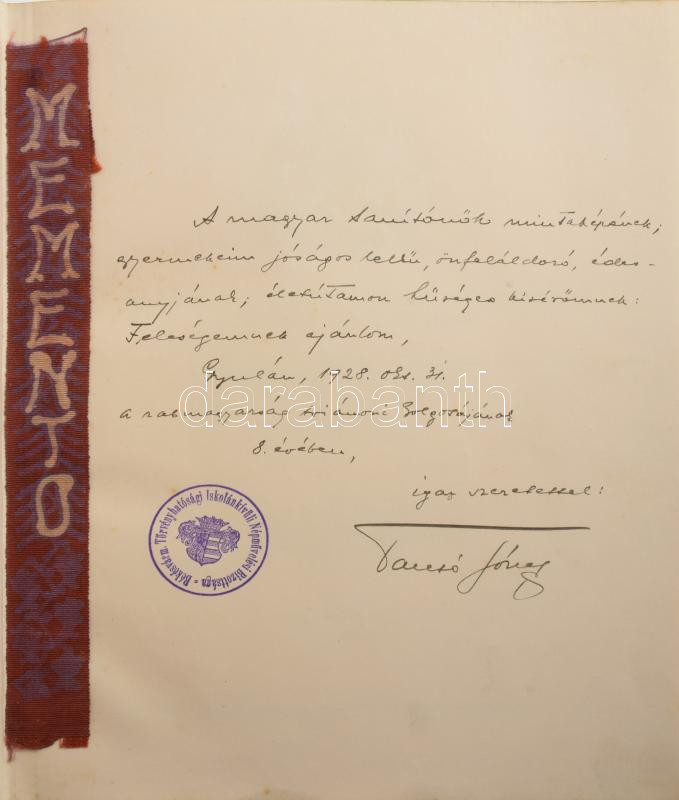 MEMENTO
A magyar tanítónők mintaképének;
gyermekeim jóságos lelkü, önfeláldozó, édes-
anyjának; életútamon hűséges kisérőmnek:
Feleségemnek ajánlom,
Gyulán, 1928. okt. 31.
a rabmagyarság trianoni Golgotájának
8. évében,
igaz szeretettel:
József
Békésvárm. Törvényhatósági Iskolánkívüli Népművelési Bizottsága
darabanth